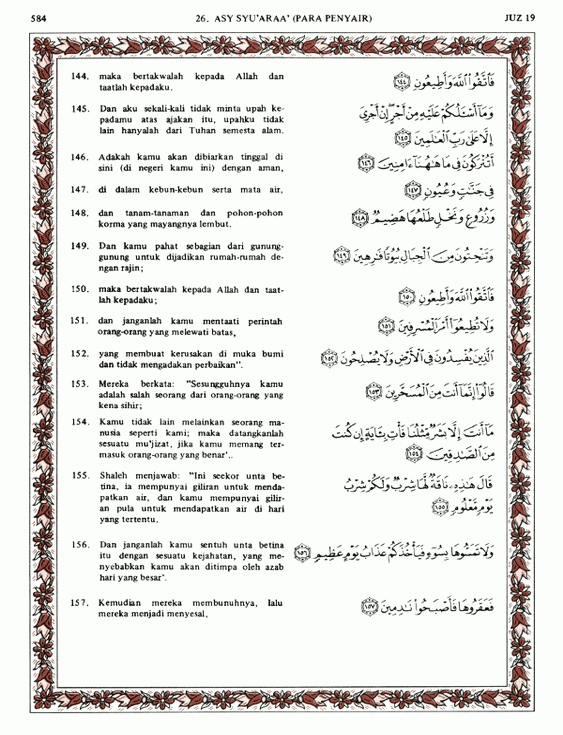 584
26. ASY SYU'ARAA' (PARA PENYAIR)
JUZ 19
144. maka bertakwalah kepada Allah dan
taatlah kepadaku.
فَاتَّقُوا اللَّهَ وَأَطِيعُونِ ١٤٤
145. Dan aku sekali-kali tidak minta upah ke-
padamu atas ajakan itu, upahku tidak
lain hanyalah dari Tuhan semesta alam.
وَمَا أَسْأَلُكُمْ عَلَيْهِ مِنْ أَجْرٍ إِنْ أَجْرِيَ
إِلَّا عَلَىٰ رَبِّ الْعَالَمِينَ ١٤٥
146. Adakah kamu akan dibiarkan tinggal di
sini (di negeri kamu ini) dengan aman,
أَتُتْرَكُونَ فِي مَا هَاهُنَا آمِنِينَ ١٤٦
147. di dalam kebun-kebun serta mata air,
فِي جَنَّاتٍ وَعُيُونٍ ١٤٧
148. dan tanam-tanaman dan pohon-pohon
korma yang mayangnya lembut.
وَزُرُوعٍ وَنَخْلٍ طَلْعُهَا هَضِيمٌ ١٤٨
149. Dan kamu pahat sebagian dari gunung-
gunung untuk dijadikan rumah-rumah de-
ngan rajin;
وَتَنْحِتُونَ مِنَ الْجِبَالِ بُيُوتًا فَارِهِينَ ١٤٩
150. maka bertakwalah kepada Allah dan taat-
lah kepadaku;
فَاتَّقُوا اللَّهَ وَأَطِيعُونِ ١٥٠
151. dan janganlah kamu mentaati perintah
orang-orang yang melewati batas,
وَلَا تُطِيعُوا أَمْرَ الْمُسْرِفِينَ ١٥١
152. yang membuat kerusakan di muka bumi
dan tidak mengadakan perbaikan".
الَّذِينَ يُفْسِدُونَ فِي الْأَرْضِ وَلَا يُصْلِحُونَ ١٥٢
153. Mereka berkata: "Sesungguhnya kamu
adalah salah seorang dari orang-orang yang
kena sihir;
قَالُوا إِنَّمَا أَنْتَ مِنَ الْمُسَحَّرِينَ ١٥٣
154. Kamu tidak lain melainkan seorang ma-
nusia seperti kami; maka datangkanlah
sesuatu mu'jizat, jika kamu memang ter-
masuk orang-orang yang benar'..
مَا أَنْتَ إِلَّا بَشَرٌ مِثْلُنَا فَأْتِ بِآيَةٍ إِنْ كُنْتَ
مِنَ الصَّادِقِينَ ١٥٤
155. Shaleh menjawab: "Ini seekor unta be-
tina, ia mempunyai giliran untuk menda-
patkan air, dan kamu mempunyai gilir-
an pula untuk mendapatkan air di hari
yang tertentu.
قَالَ هَٰذِهِ نَاقَةٌ لَهَا شِرْبٌ وَلَكُمْ شِرْبُ
يَوْمٍ مَعْلُومٍ ١٥٥
156. Dan janganlah kamu sentuh unta betina
itu dengan sesuatu kejahatan, yang me-
nyebabkan kamu akan ditimpa oleh azab
hari yang besar'.
وَلَا تَمَسُّوهَا بِسُوءٍ فَيَأْخُذَكُمْ عَذَابُ يَوْمٍ عَظِيمٍ ١٥٦
157. Kemudian mereka membunuhnya, lalu
mereka menjadi menyesal,
فَعَقَرُوهَا فَأَصْبَحُوا نَادِمِينَ ١٥٧